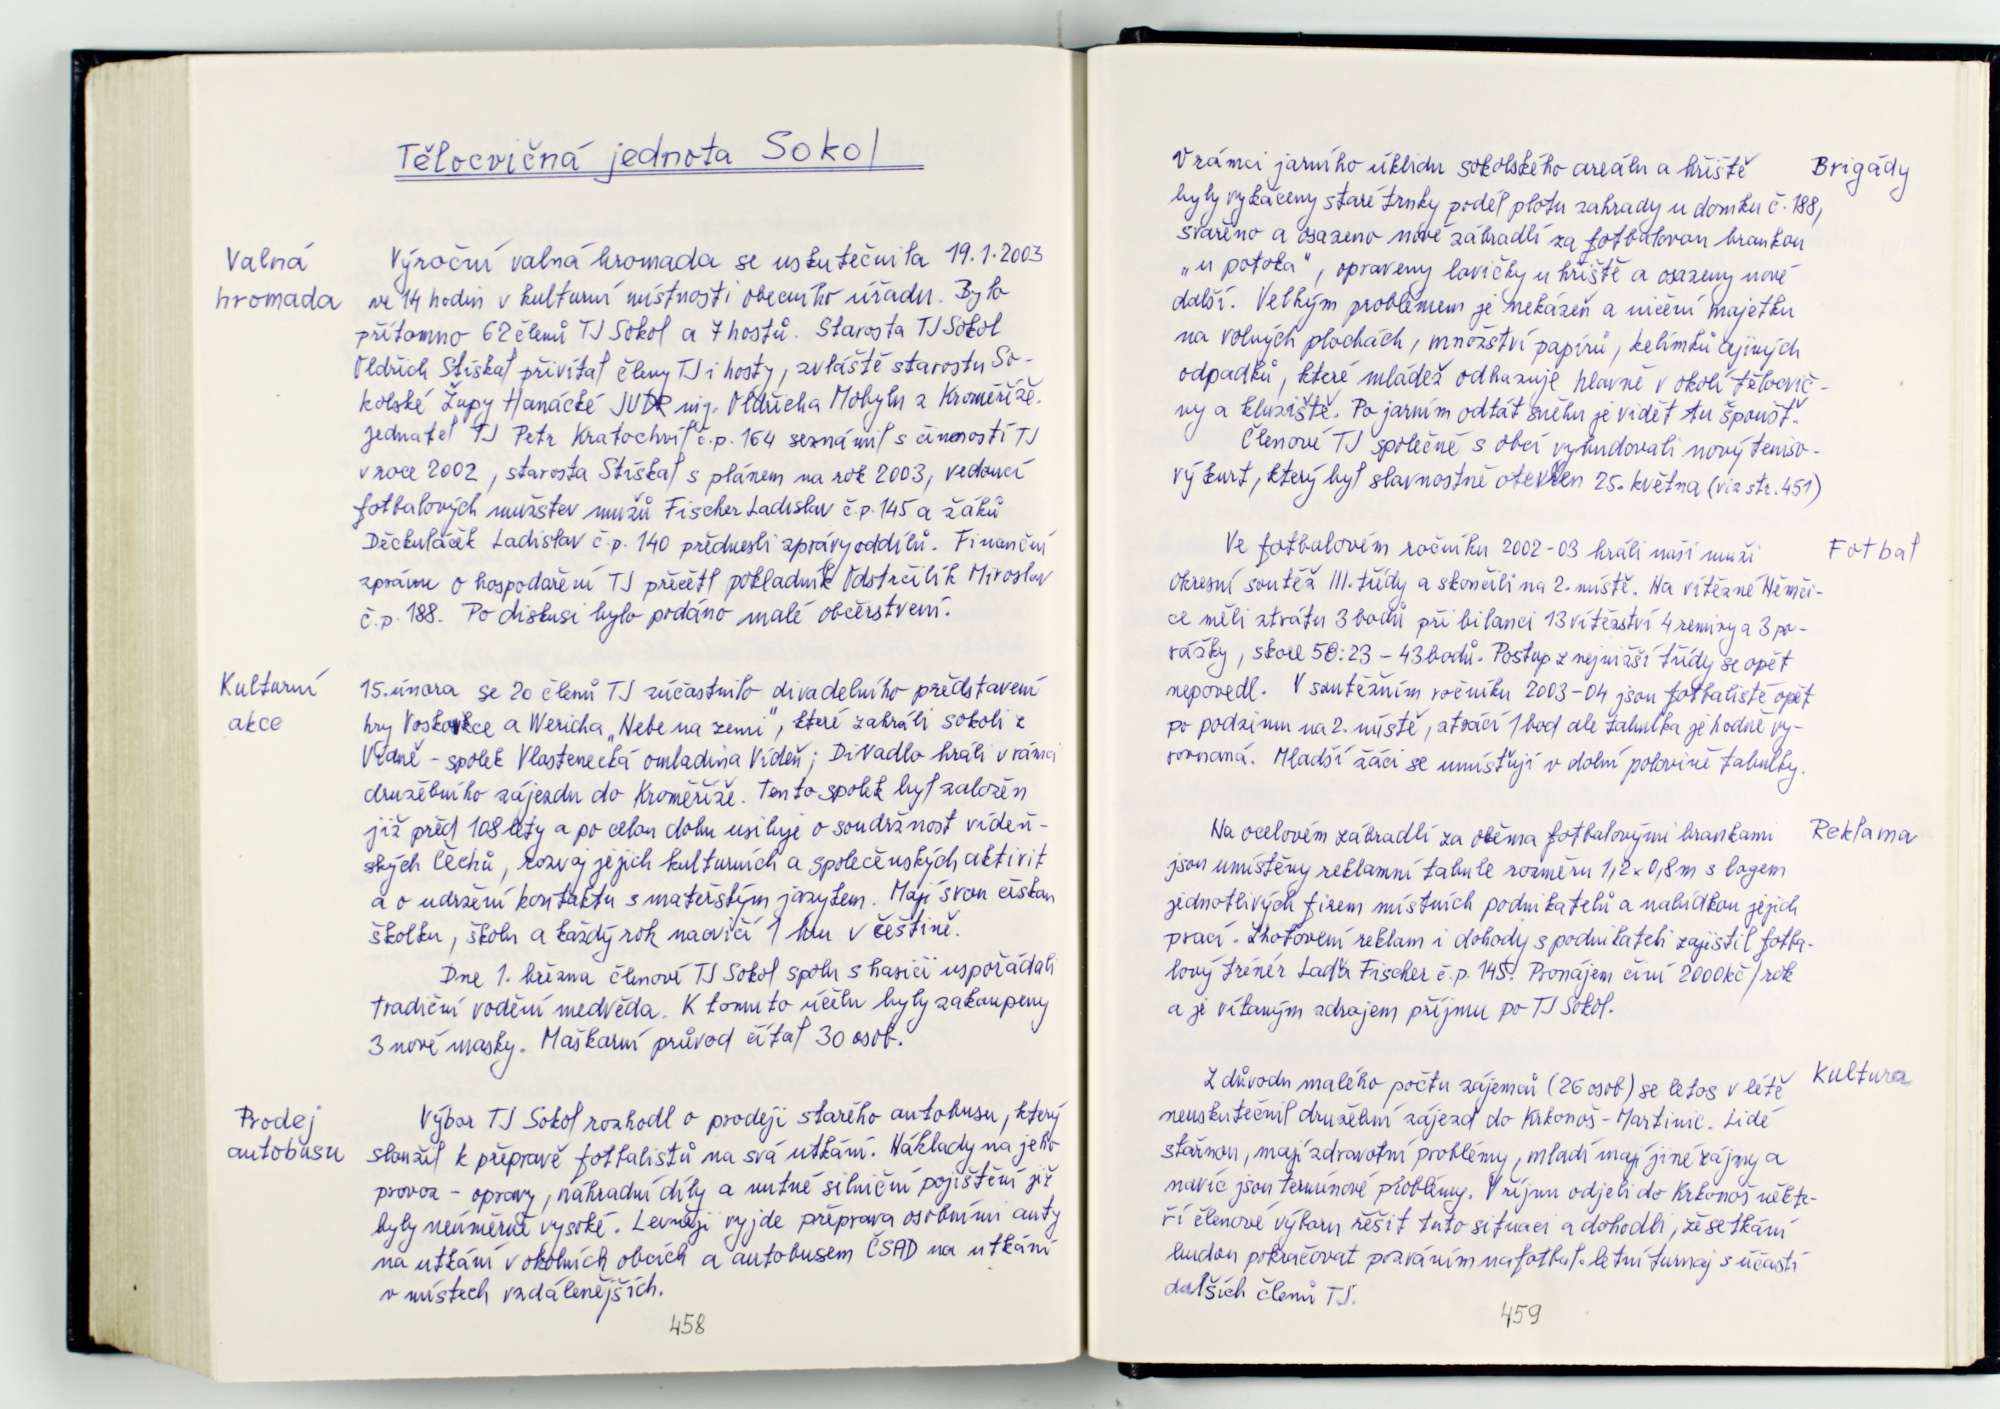 Tělocvičná jednota Sokol
Valná
hromada
Výroční valná hromada se uskutečnila 19.1.2003
ve 14 hodin v kulturní místnosti obecního úřadu. Bylo
přítomno 62 členů TJ Sokol a 7 hostů. Starosta TJ Sokol
Oldřich Stískal přivítal členy TJ i hosty, zvláště starostu So-
kolské Župy Hanácké JUDR ing. Oldřicha Mobylu z Kroměříže.
Jednatel TJ Petr Kratochvíl č.p. 164 seznámil s činností TJ
v roce 2002, starosta Stískal s plánem na rok 2003, vedoucí
fotbalových mužstev mužů Fischer Ladislav č.p. 145 a žáků
Děckuláček Ladislav č.p. 140 přednesli zprávy oddílů. Finanční
zprávu o hospodaření TJ přečetl pokladník Odstrčilík Miroslav
č.p. 188. Po diskusi bylo podáno malé občerstvení.
Kulturní
akce
15. února se 20 členů TJ zúčastnilo divadelního představení
hry Voskovce a Wericha „Nebe na zemi", které zahráli sokoli z
Vídně - spolek Vlastenecká omladina Vídeň; Divadlo hráli v rámci
družebního zájezdu do Kroměříže. Tento spolek byl založen
již před 108 lety a po celou dobu usiluje o soudržnost vídeň-
ských Čechů, rozvoj jejich kulturních a společenských aktivit
a o udržení kontaktu s mateřským jazykem. Mají svou českou
školku, školu a každý rok nacvičí 1 hru v češtině.
Dne 1. března členové TJ Sokol spolu s hasiči uspořádali
tradiční vodění medvěda. K tomuto účelu byly zakoupeny
3 nové masky. Maškarní průvod čítal 30 osob.
Prodej
autobusu
Výbor TJ Sokol rozhodl o prodeji starého autobusu, který
sloužil k přepravě fotbalistů na svá utkání. Náklady na jeho
provoz - opravy, náhradní díly a nutné silniční pojištění již
byly neúměrně vysoké. Levněji vyjde přeprava osobními auty
na utkání v okolních obcích a autobusem ČSAD na utkání
v místech vzdálenějších.
458
Brigády
V rámci jarního úklidu sokolského areálu a hřiště
byly vykáceny staré trnky podél plotu zahrady u domku č. 188,
svařeno a osazeno nové zábradlí za fotbalovou brankou
„u potoka", opraveny lavičky u hřiště a osazeny nové
další. Velkým problémem je nekázeň a ničení majetku
na volných plochách, množství papírů, kelímků a jiných
odpadků, které mládež odhazuje hlavně v okolí tělocvič-
ny a kluziště. Po jarním odtátí sněhu je vidět tu spoušť.
Členové TJ společně s obcí vybudovali nový teniso-
vý kurt, který byl slavnostně otevřen 25. května (viz str. 451)
Fotbal
Ve fotbalovém ročníku 2002-03 hráli naši muži
Okresní soutěž III. třídy a skončili na 2. místě. Na vítězné Němči-
ce měli ztrátu 3 bodů při bilanci 13 vítězství 4 remízy a 3 po-
rážky, skore 58:23 - 43 bodů. Postup z nejnižší třídy se opět
nepovedl. V soutěžním ročníku 2003-04 jsou fotbalisté opět
po podzimu na 2. místě, ztrácí 1 bod ale tabulka je hodně vy-
rovnaná. Mladší žáci se umístují v dolní polovině tabulky.
Reklama
Na ocelovém zábradlí za oběma fotbalovými brankami
jsou umístěny reklamní tabule rozměru 1,2 x 0,8m s logem
jednotlivých firem místních podnikatelů a nabídkou jejich
prací. Zhotovení reklam i dohody s podnikateli zajistil fotba-
lový trénér Laďa Fischer č.p. 145. Pronájem činí 2000kč/rok
a je vítaným zdrojem příjmu po TJ Sokol.
Kultura
Z důvodu malého počtu zájemců (26 osob) se letos v létě
neuskutečnil družební zájezd do Krkonoš - Martinic. Lidé
stárnou, mají zdravotní problémy, mladí mají jiné zájmy a
navíc jsou termínové problémy. V říjnu odjeli do Krkonoš někte-
ří členové výboru řešit tuto situaci a dohodli, že setkání
budou pokračovat pozváním na fotbal. letní turnaj s účastí
dalších členů TJ.
459